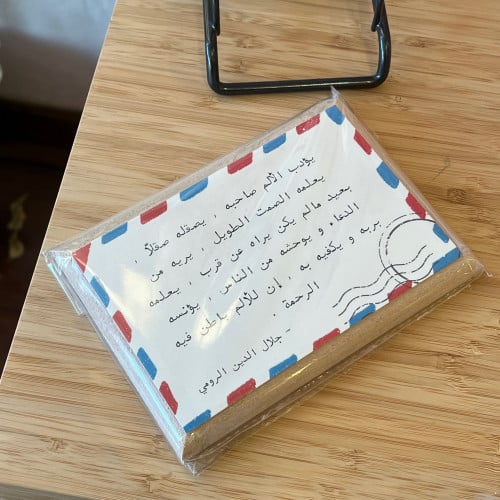 يؤدب الألم صاحبه ، يصقله صقلاً ،
يعلمه الصمت الطويل ، يريه من
بعيد مالم يكن يراه عن قرب ، يعلمه
الدعاء و يوحشه من الناس ، يؤنسه
بربه و يكفيه به ، إن للألم باطن فيه
الرحمة ،
- جلال الدين الرومي